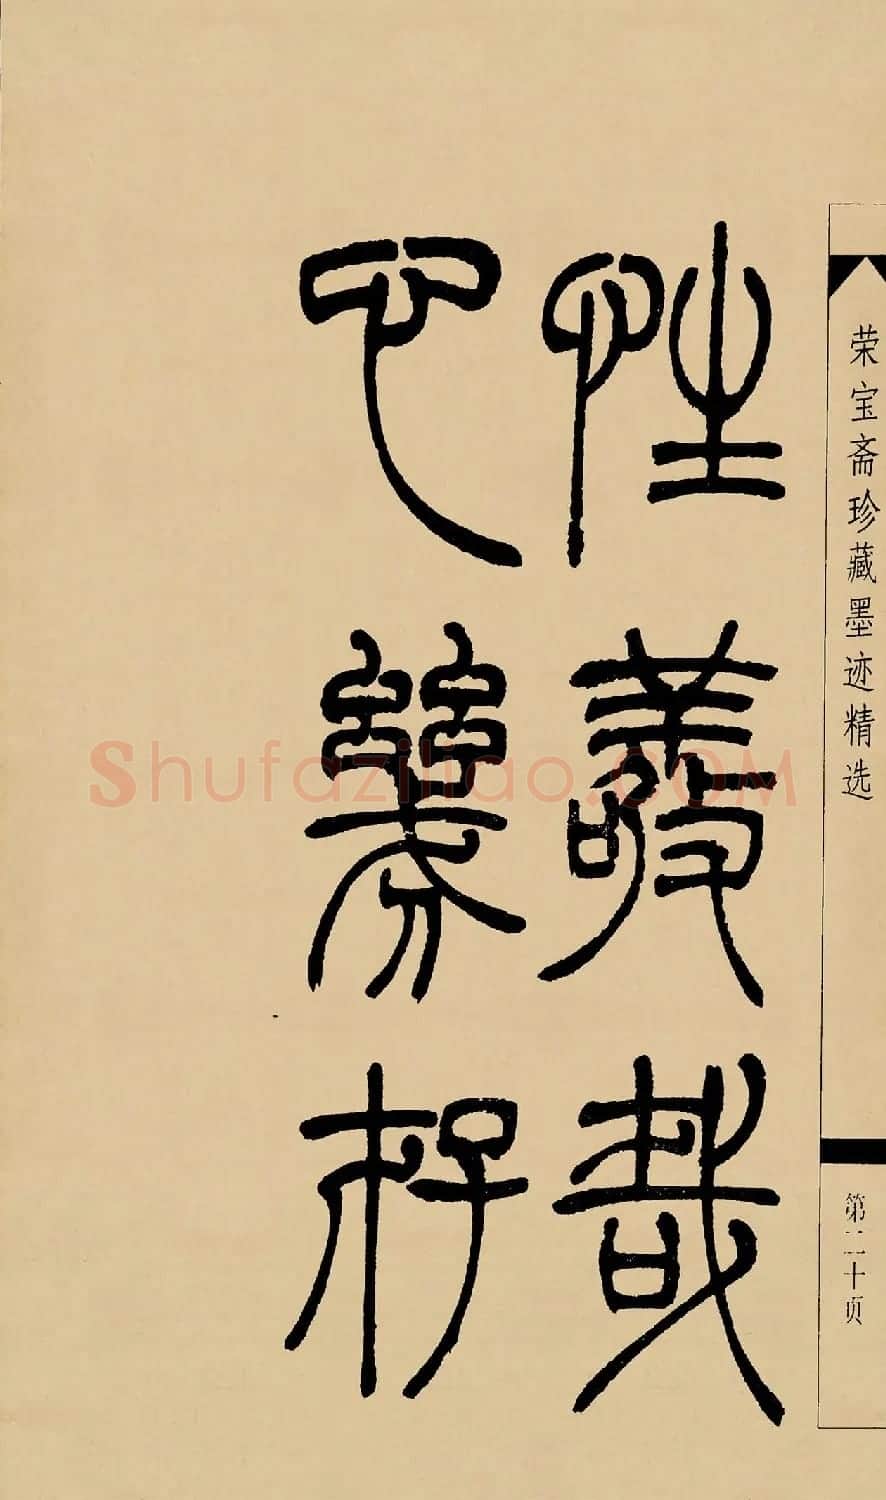 性敬哉
心幾存
荣宝斋珍藏墨迹精选
第二十页
Shufaziliao.COM